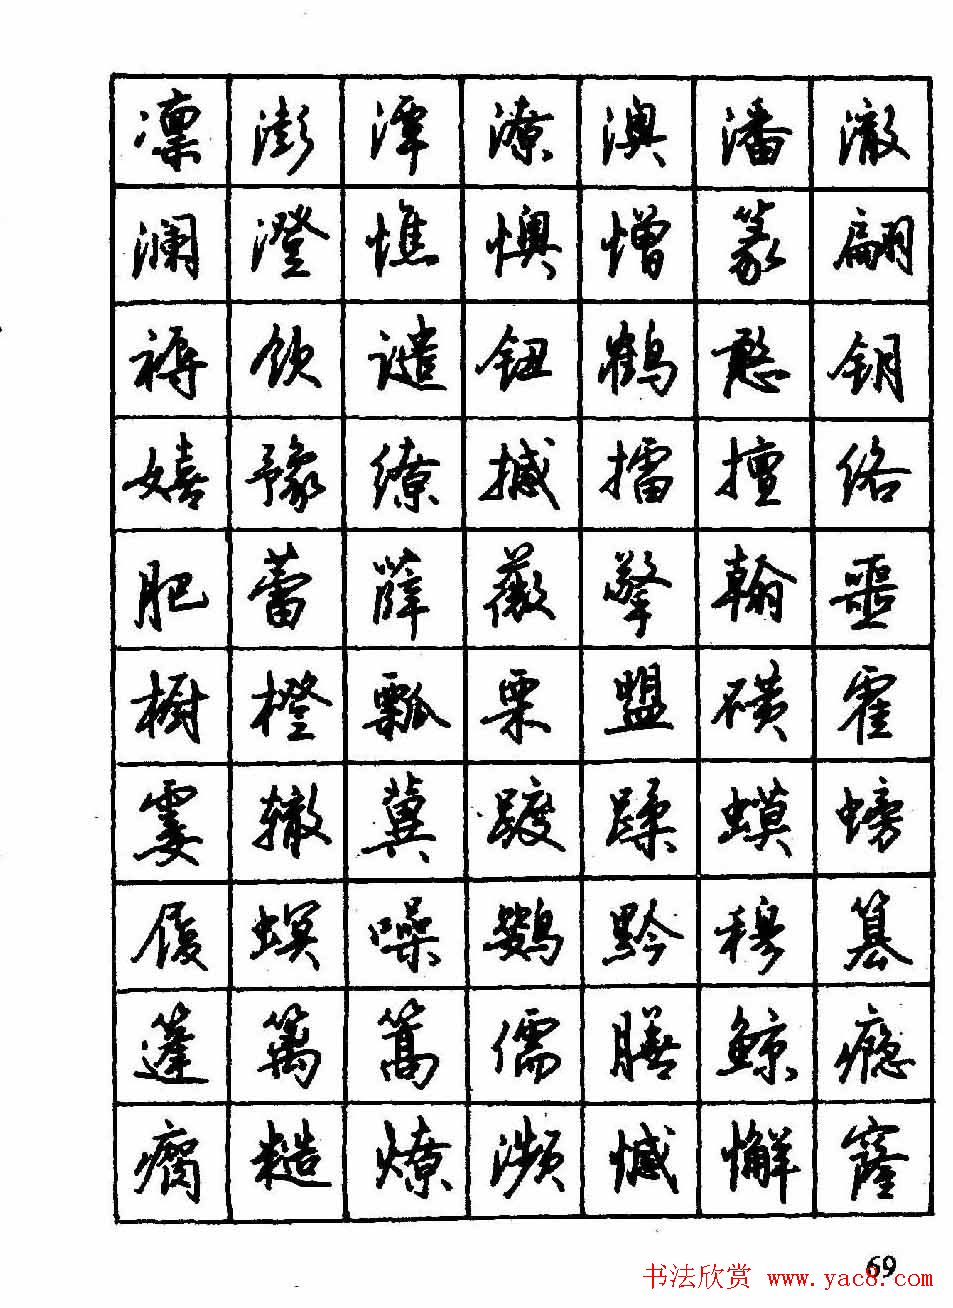 凛澎潭潦澳潘澈
澜澄憔懊憎篆翩
褥钦谴钮鹤憨钥
嬉豫缭撼擂擅络
肥蕾薛薇擎翰噩
橱橙瓢栗盟磺霍
霎辙冀踱蹂蟆螃
履螟噪鹦黔穆篡
篷篱篙儒膳鲸瘾
瘸糙燎濒憾懈窿
69
书法欣赏 www.yac8.com